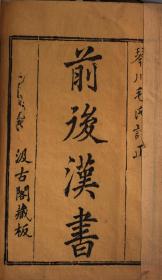 琴川毛氏訂正
前後漢書
汲古閣藏板